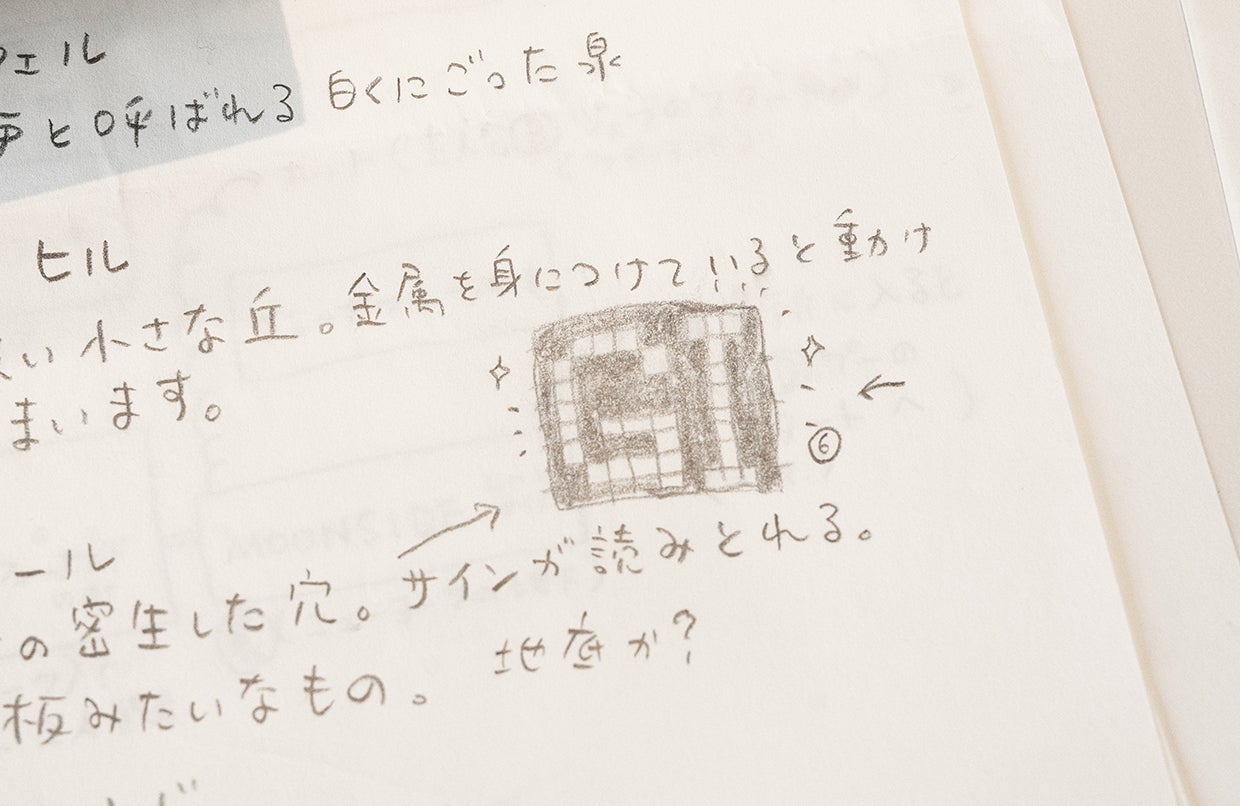 ェル
と呼ばれる 白くにごった泉
ヒル
い小さな丘。金属を身につけていると動け
まいます。
⑥
ール
の密生した穴。サインが読みとれる。
板みたいなもの。 地底か?
MOONSIDE